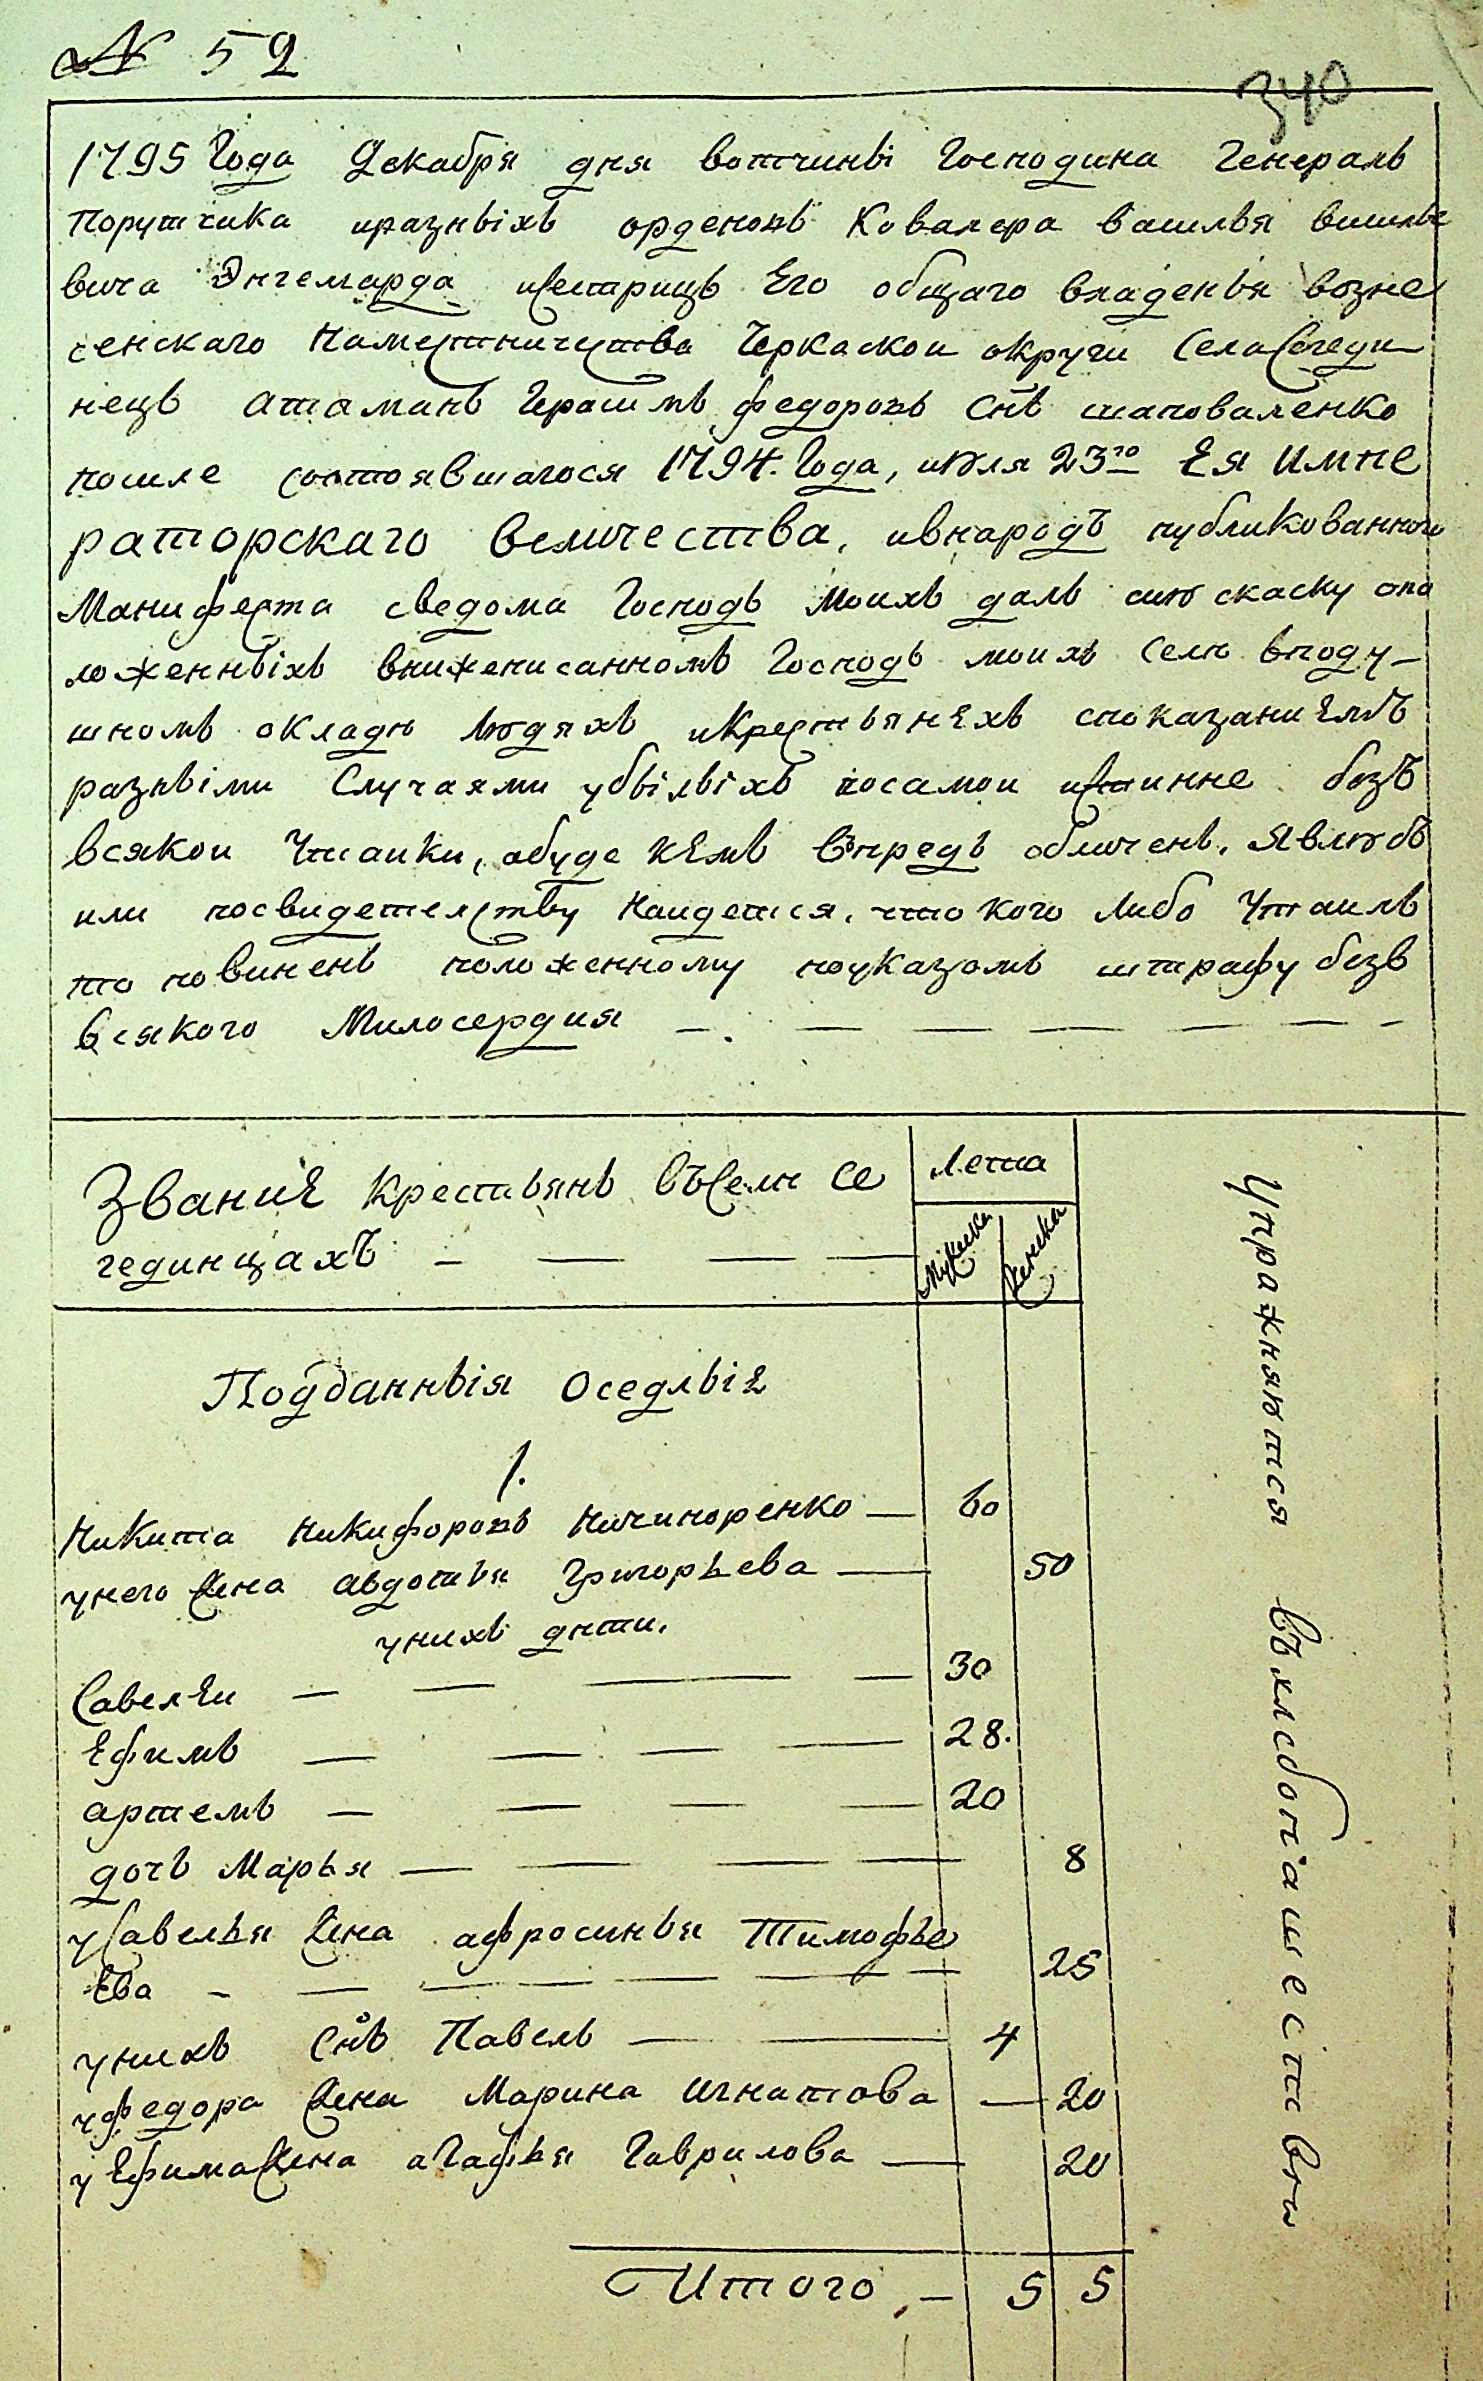 № 52
340
1795 Года Декабря дня вотчины Господина Генералъ
Порутчика иразныхъ орденовъ Ковалера василья василье
вича Энгельгарда исестрицъ Его общаго владенья возне
сенскаго Наместничества Черкаской округи Села Сегеди
нецъ атаманъ Герасимъ федоровъ Снъ шаповаленко
после состоявшагося 1794. Года, июля 23го Ея Импе
раторскаго величества, ивнародъ публикованного
Манифеста сведома Господъ Моихъ далъ сию скаску опо
ложенныхъ внижеписанномъ Господъ моихъ селѣ вподу-
шномъ окладѣ людяхъ икрестьянехъ споказаниемъ
разными Случаями убылыхъ посамои истинне безъ
всякои Утаики, абуде кемъ впредь обличенъ. Явлюсь
или посвидетелству Наидется, что кого либо Утаилъ
то повиненъ положенному поуказомъ штрафу безъ
всякого Милосердия
Звание крестьянъ въСелѣ Се
гединцахъ
Лета
Мужска
Женска
Подданныя оседлые
1.
Никита Никифоровъ Ничипоренко — 60
унего жена авдотья Григорьева — 50
унихъ дѣти.
Савелеи — 30
Ефимъ — 28.
артемъ — 20
дочь Марья — 8
уСавелья жена афросинья Тимофѣе
ева — 25
унихъ Снъ Павелъ — 4
уфедора жена Марина игнатова — 20
у Ефима жена агафья Гаврилова — 20
Итого — 5 5
Упражняются въхлебопашестве